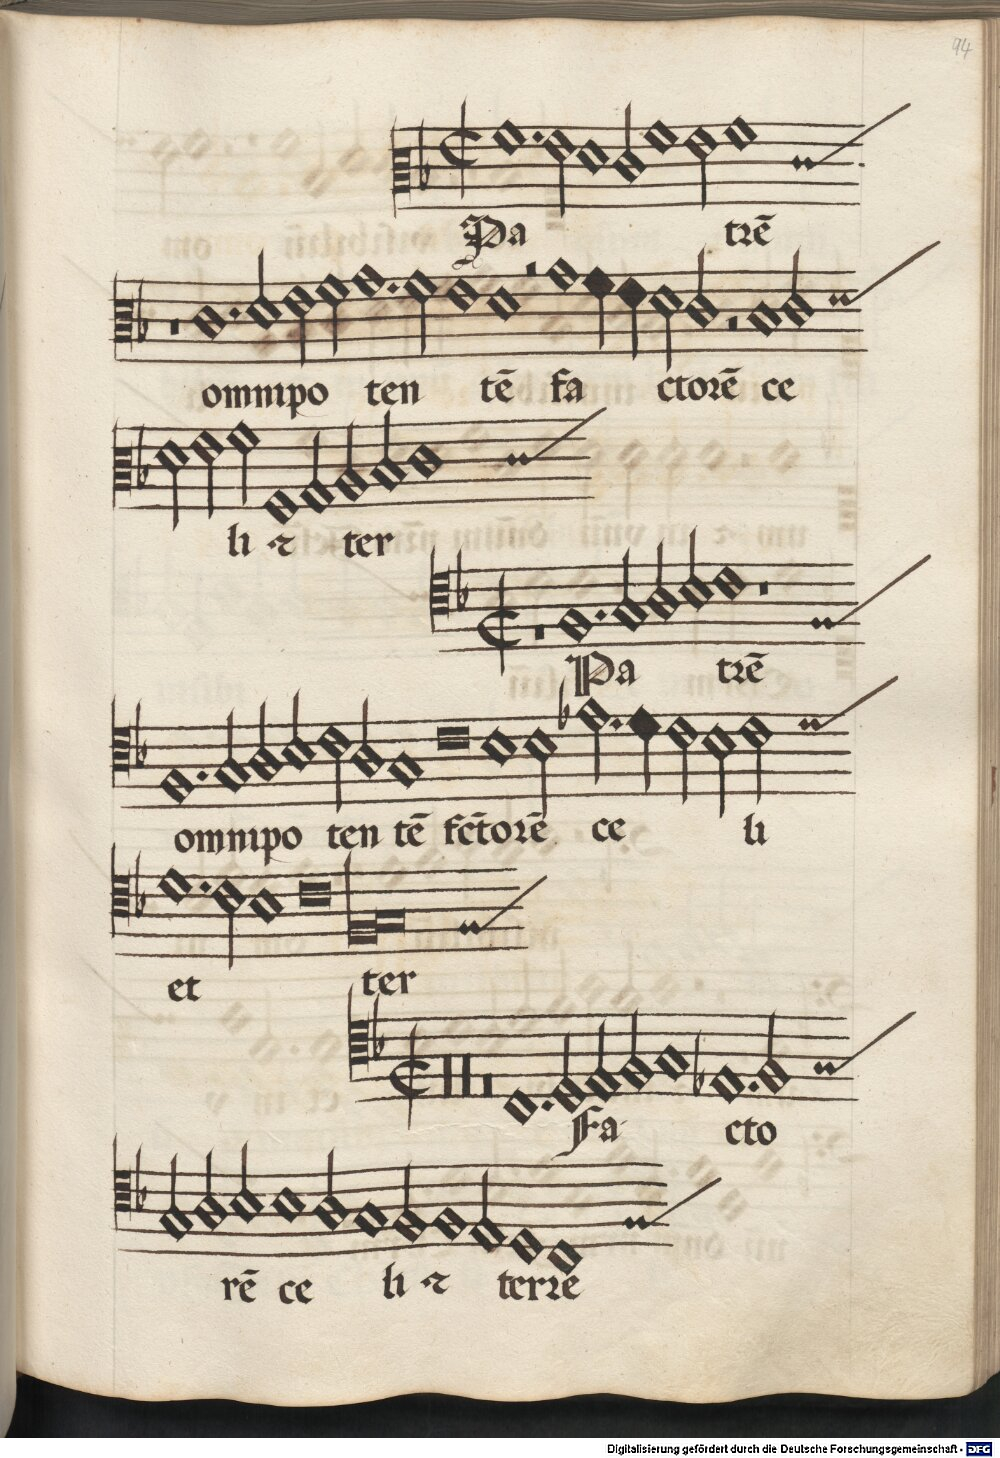 94
Pa trē
omnipo ten tē fa ctorē ce
li ⁊ ter
Pa trē
omnipo ten tē fc̄torē ce li
et ter
Fa cto
rē ce li ⁊ terre
Digitalisierung gefördert durch die Deutsche Forschungsgemeinschaft - DFG